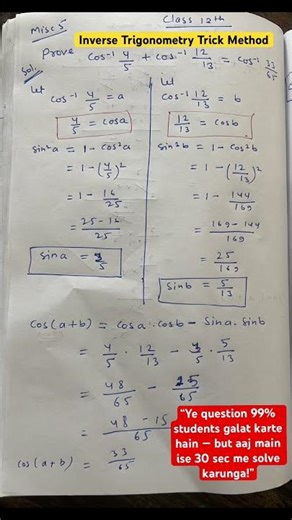 Misc 5
Class 12th
Inverse Trigonometry Trick Method
Prove cos⁻¹ 4/5 + cos⁻¹ 12/13 = cos⁻¹ 33/65
Sol.
Let
cos⁻¹ 4/5 = a
4/5 = cosa
sin²a = 1 - cos²a
= 1 - (4/5)²
= 1 - 16/25
= 25-16/25
Sina = 3/5
Let
cos⁻¹ 12/13 = b
12/13 = cosb
sin²b = 1 - cos²b
= 1 - (12/13)²
= 1 - 144/169
= 169 - 144/169
= 25/169
Sinb = 5/13
Cos(a+b) = Cosa . Cosb - Sina . Sinb
= 4/5 . 12/13 - 3/5 . 5/13
= 48/65 - 15/65
= 48 - 15/65
cos(a+b) = 33/65
"Ye question 99%
students galat karte
hain — but aaj main
ise 30 sec me solve
karunga!"